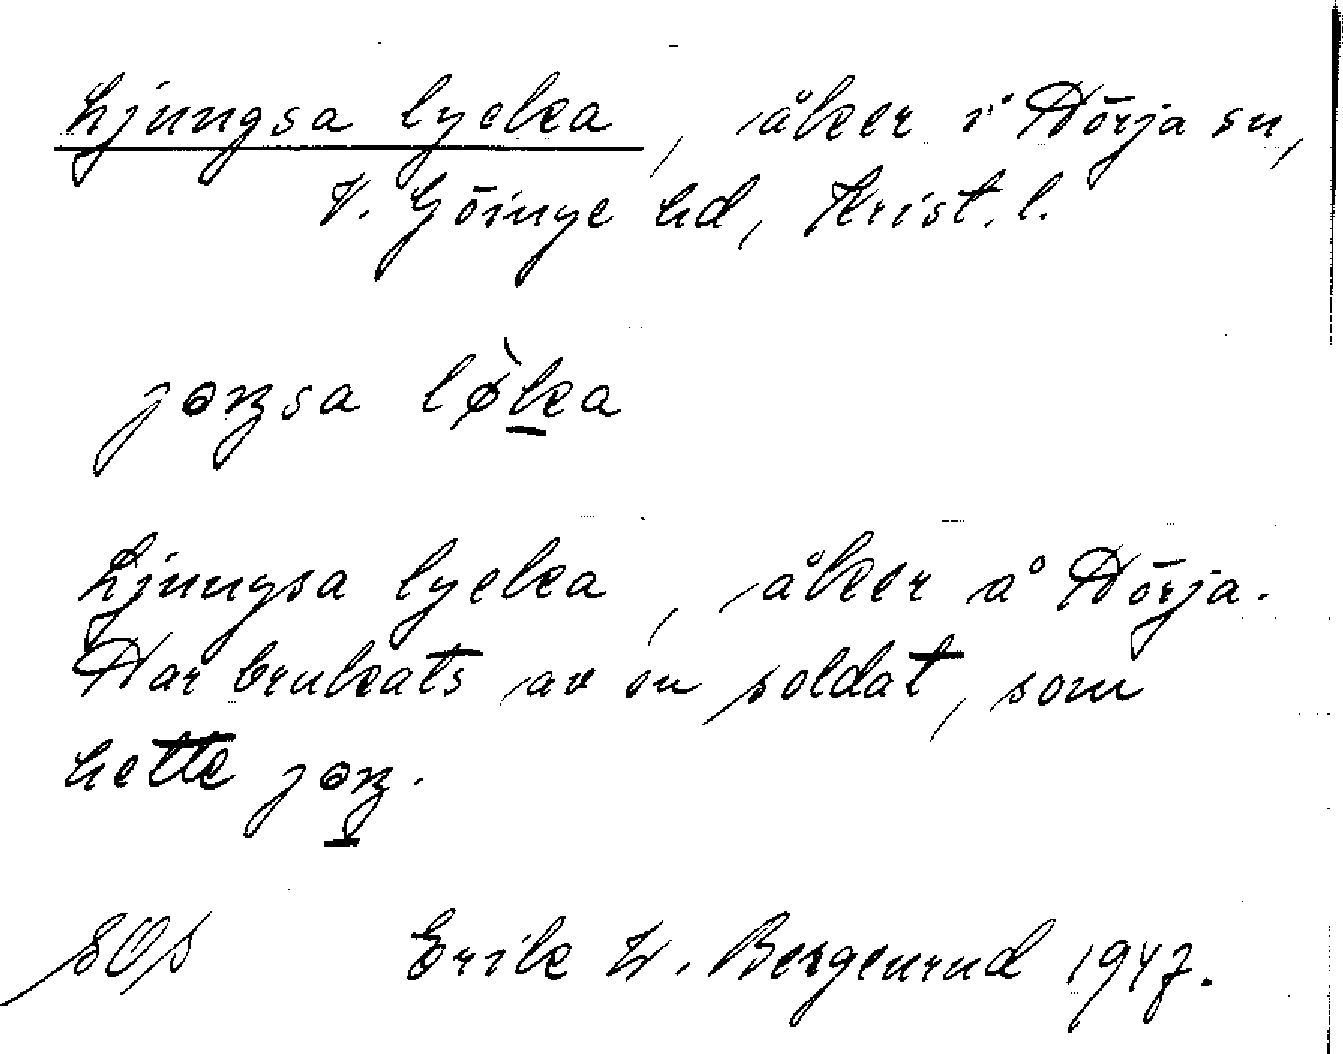 Ljungsa lycka, åker i Hörja sn,
V. Göinge hd, Krist. l.
jɵŋsa lø̀ka
Ljungsa lycka, åker å Hörja.
Har brukats av en soldat, som
hette jɵŋ.
Erik W. Bergenrud 1947.